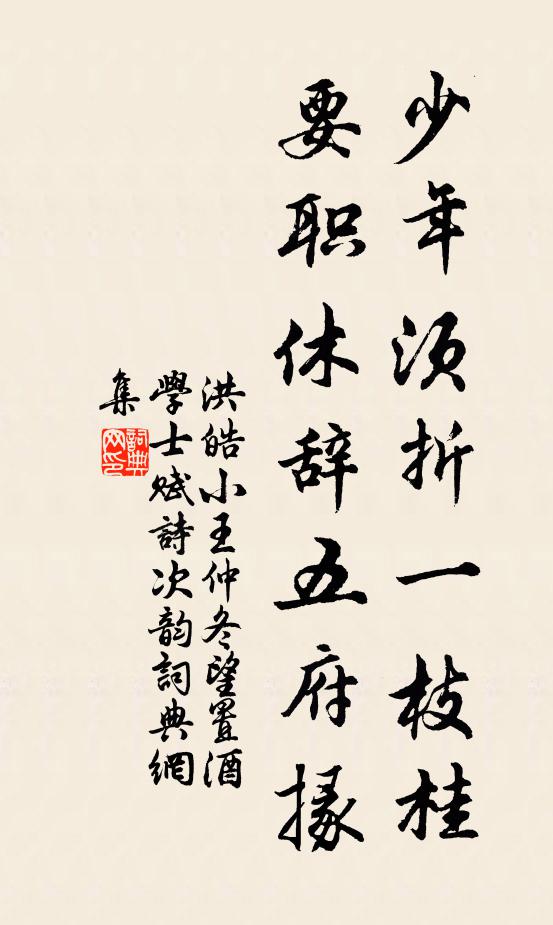 少年须折一枝桂
要职休辞五府掾
洪皓小王仲冬望置酒
學士赋詩次韵詞典網
集
詞典网印